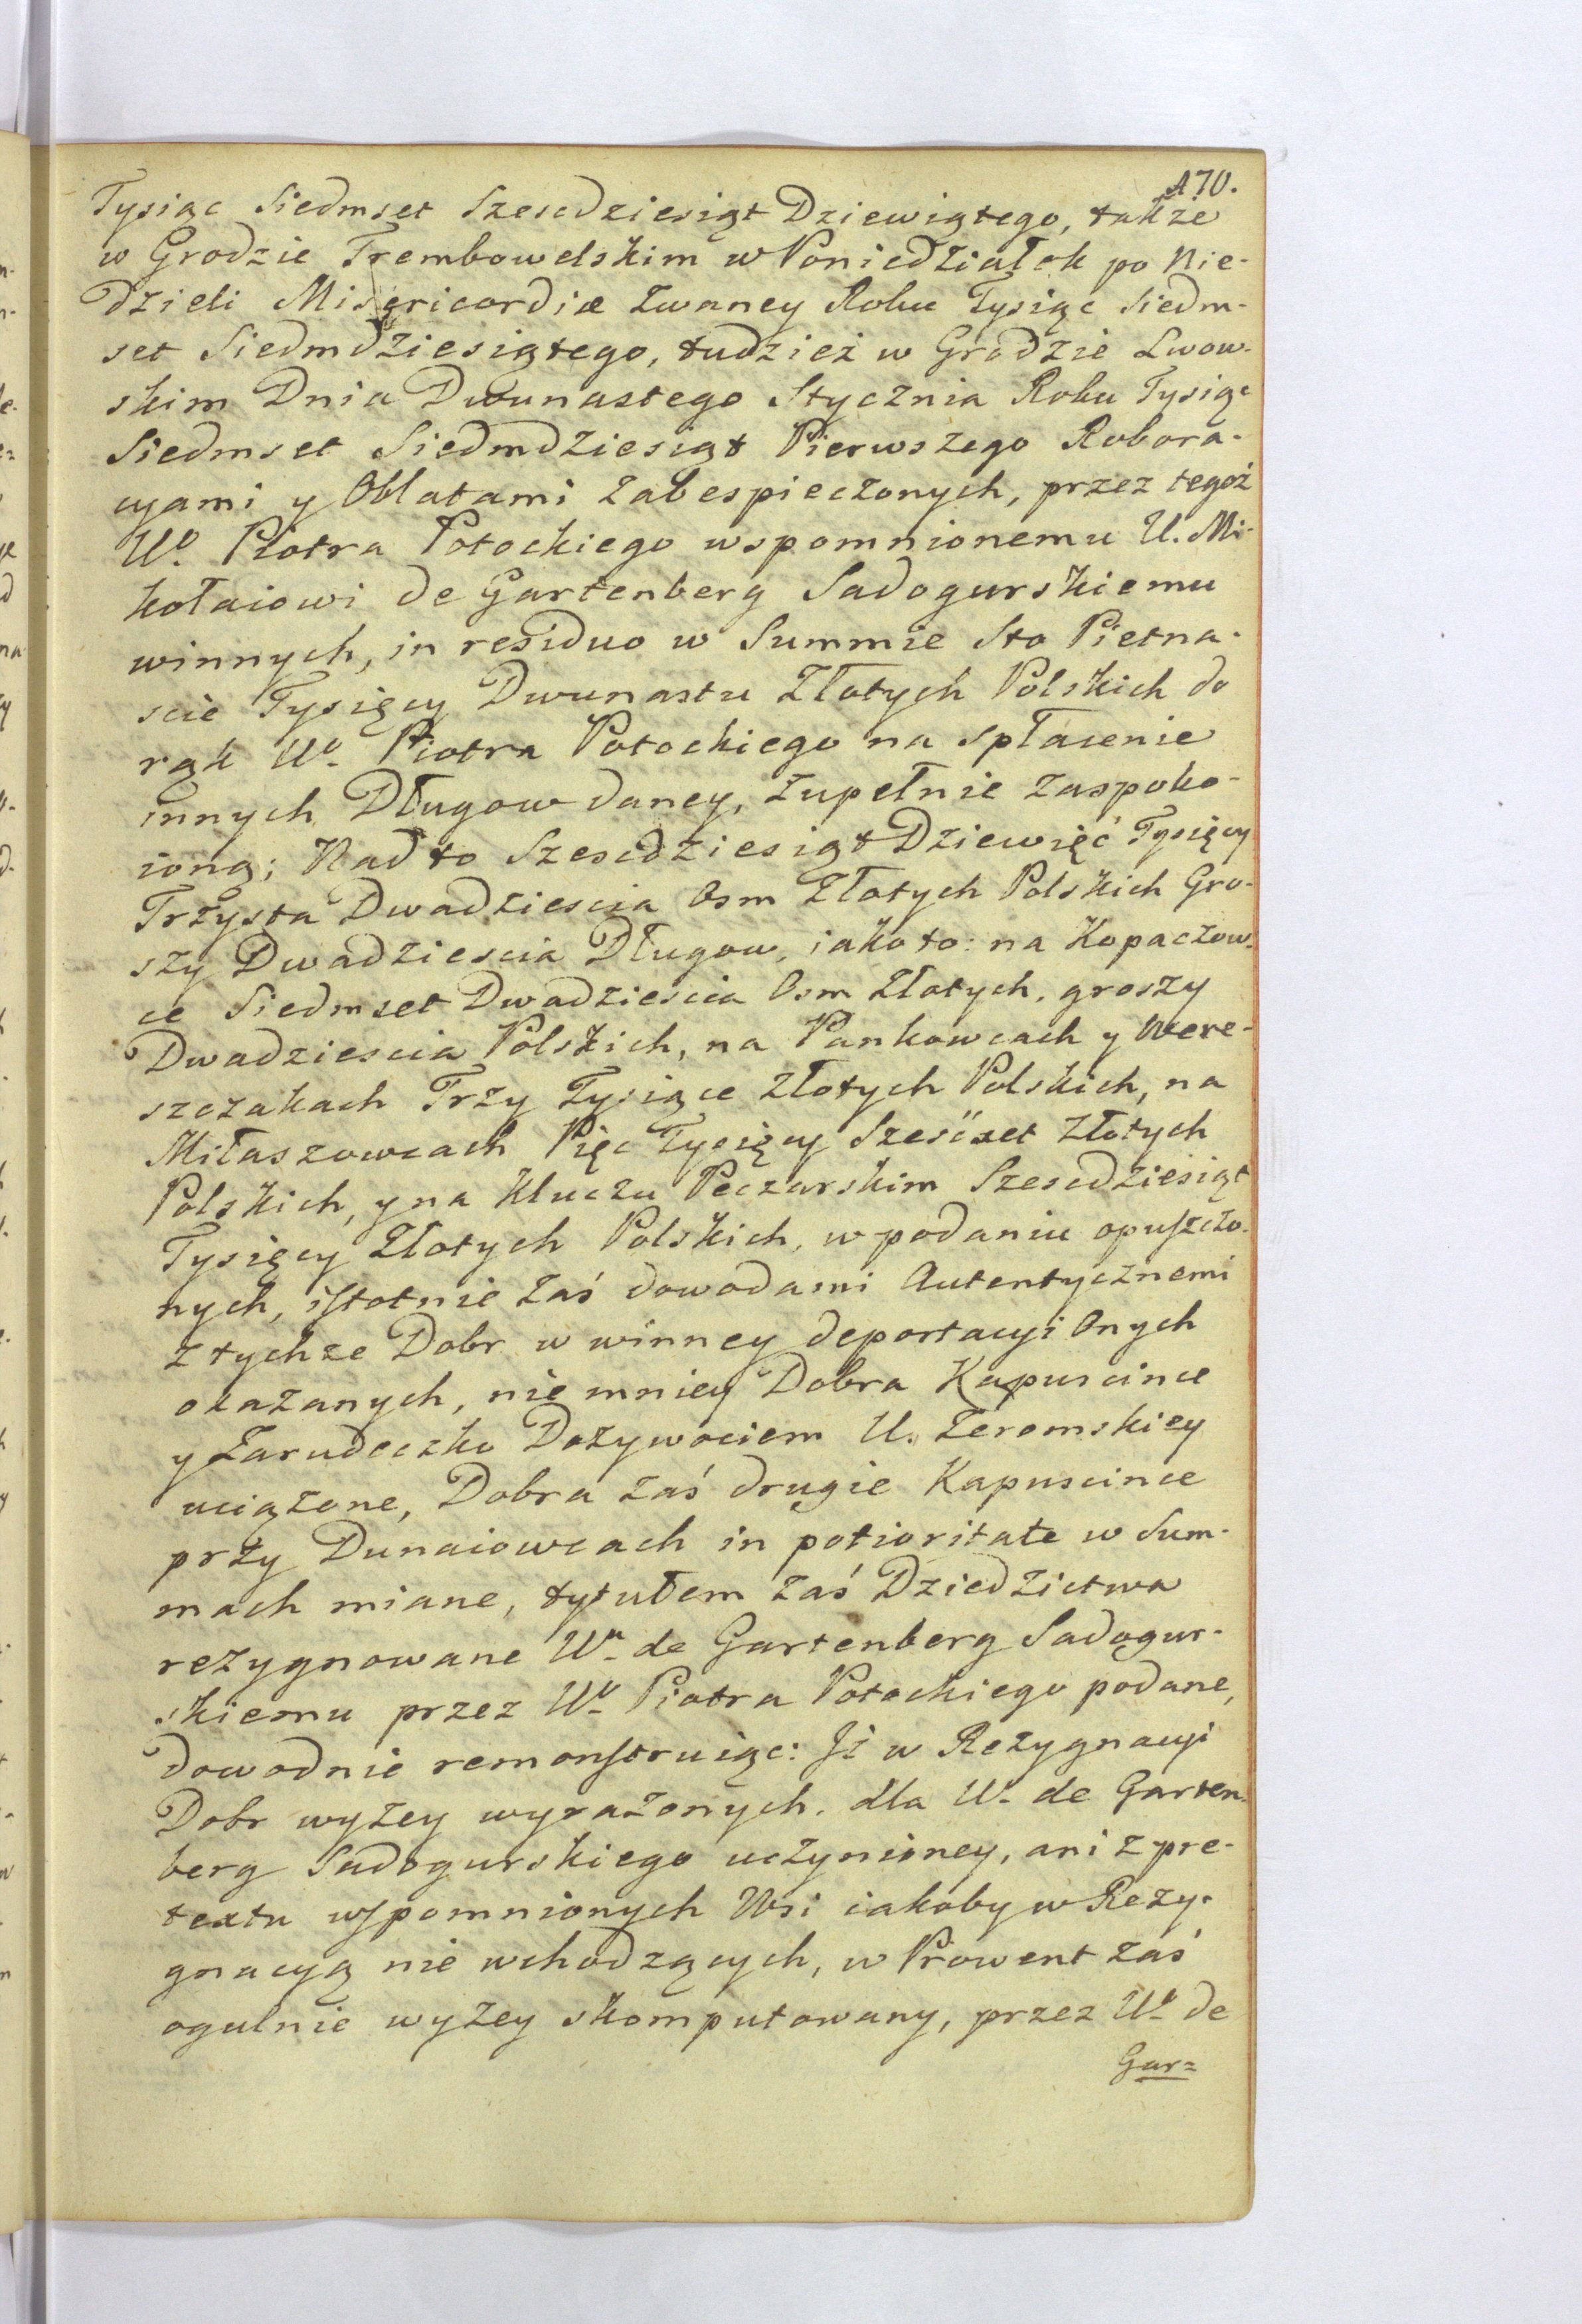 170.
Tysiąc Siedmset Szescdziesiąt Dziewiątego, także
w Grodzie Trembowelskim w Poniedziałek po Nie-
dzieli Misericordiæ Zwaney Roku Tysiąc Siedm-
set Siedmdziesiątego, tudzież w Grodzie Lwow-
skim Dnia Dwunastego Stycznia Roku Tysiąc
Siedmset Siedmdziesiąt Pierwszego Robora-
cyami y Oblatami zabespieczonych, przez tegoż
Wo. Piotra Potockiego wspomnionemu U. Mi-
kołaiowi de Gartenberg Sadogurskiemu
winnych, in residuo w Summie Sto Pietna-
scie Tysięcy Dwunastu Złotych Polskich do
rąk Wo. Piotra Potockiego na spłacenie
innych Długow daney, zupełnie zaspoko-
ioną; Nad to Szescdziesiąt Dziewięć Tysięcy
Trzysta Dwadziescia Osm Złotych Polskich Gro-
szy Dwadziescia Długow, iako to: na Kopaczow-
ce Siedmset Dwadziescia Osm Złotych, groszy
Dwadziescia Polskich, na Pankowcach y Were-
szczakach Trzy Tysiące Złotych Polskich, na
Miłaszowcach Pięc Tysięcy Sześćset Złotych
Polskich, y na Kluczu Peczarskim Szescdziesiąt
Tysięcy Złotych Polskich, w podaniu opuszczo-
nych, istotnie zaś dowodami Autentycznemi
z tychże Dobr w winney deportacyi Onych
okazanych, nie mniey Dobra Kapuscince
y Zarudeczko Dożywociem U. Zeromskiey
uciążone, Dobra zaś drugie Kapuscince
przy Dunaiowcach in potioritate w Sum-
mach miane, tytułem zaś Dziedzictwa
rezygnowane Wu. de Gartenberg Sadogur-
skiemu przez Wo. Piotra Potockiego podane,
dowodnie remonstruiąc: Iż w Rezygnacyi
Dobr wyżey wyrażonych, dla Wo. de Garten-
berg Sadogurskiego uczynioney, ani z pre-
textu wspomnionych Wsi iakoby w Rezy-
gnacyą nie wchodzących, w Prowent zaś
ogulnie wyżey skomputowany, przez Wo. de
Gar=